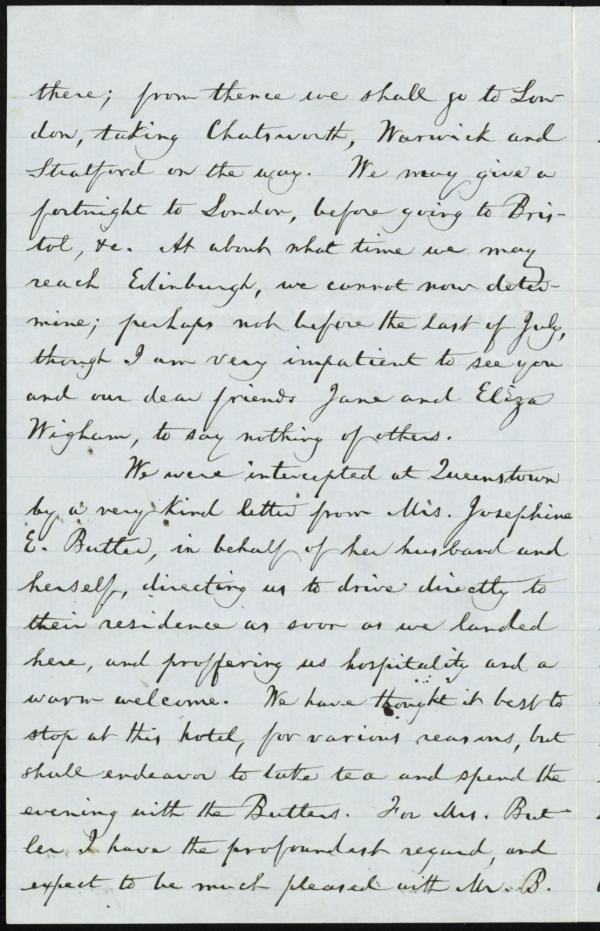 there; from thence we shall go to Lon-
don, taking Chatsworth, Warwick and
Stratford on the way. We may give a
fortnight to London, before going to Bris-
tol, &c. At about what time we may
reach Edinburgh, we cannot now deter-
mine; perhaps not before the last of July,
though I am very impatient to see you
and our dear friends Jane and Eliza
Wigham, to say nothing of others.
We were intercepted at Queenstown
by a very kind letter from Mrs. Josephine
E. Butler, in behalf of her husband and
herself, directing us to drive directly to
their residence as soon as we landed
here, and proffering us hospitality and a
warm welcome. We have thought it best to
stop at this hotel, for various reasons, but
shall endeavor to take tea and spend the
evening with the Butlers. For Mrs. But-
ler I have the profoundest regard, and
expect to be much pleased with Mr. B.